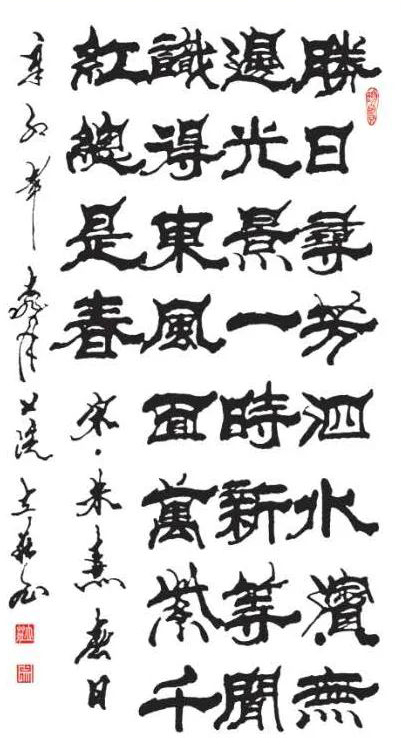 勝日尋芳泗水濱無
邊光景一時新等閒
識得東風面萬紫千
紅總是春 宋·朱熹春日
辛卯年